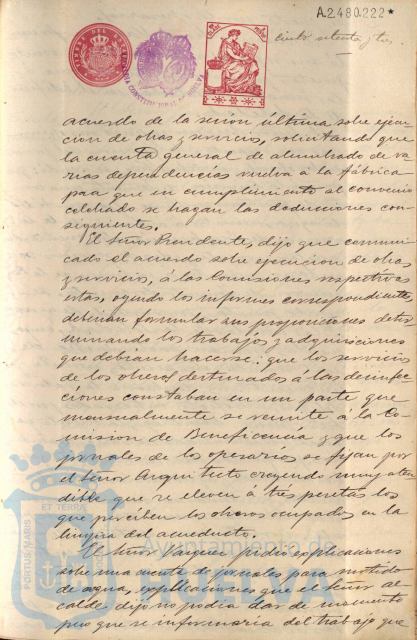 A.2480.222*
ciento setenta y tres
acuerdo de la sesión última sobre ejecu-
cion de obras y servicios, solicitando que
la cuenta general de alumbrado de va-
rias dependencias vuelva á la fábrica
para que en cumplimiento al convenio
celebrado se hagan las deducciones con-
siguientes.
El Señor Presidente, dijo que comuni-
cado el acuerdo sobre ejecucion de obras
y servicios, á las Comisiones respectivas
estas, oyendo los informes correspondientes
deberian formular sus proposiciones deter-
minando los trabajos y adquisiciones
que debian hacerse: que los servicios
de los obreros destinados á las desinfec-
ciones constaban en un parte que
mensualmente se remite á la Co-
mision de Beneficencia y que los
jornales de los operarios se fijan por
el Señor Arquitecto creyendo muy aten-
dible que se eleven á tres pesetas los
que perciben los obreros ocupados en la
limpieza del acueducto.
El Señor Vazquez pidió explicaciones
sobre una cuenta de jornales para surtido
de agua, explicaciones que el Señor Al-
calde dijo no podia dar de momento
pero que se informaria del trabajo que
PORTUS MARIS ET TERRAE
Ayuntamiento de